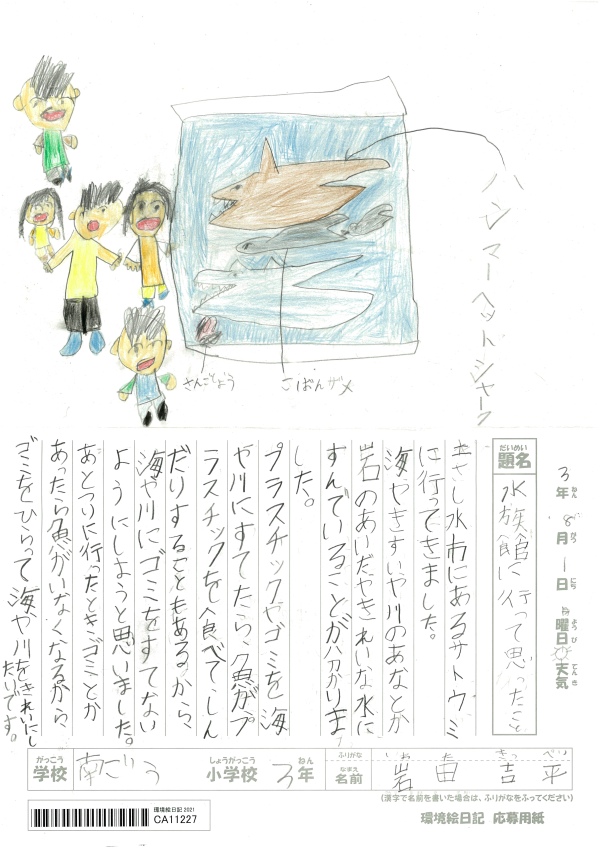 ハンマーヘットシャーク
さんごしょう
こばんザメ
3年 8月 1日 曜日 天気
ねん がつ にち ようび てんき
だいめい
題名
水族館に行って思ったこと
に行ってきました。
海やきすいや川のあなとか
岩のあいだやきれいな水に
すんでいることが分かりま
した。
プラスチックやゴミを海
や川にすてたら、魚がプ
ラスチックを食べてしん
だりすることもあるから、
海や川にゴミをすてない
ようにしようと思いました。
あとつりに行ったときゴミとか
あったら魚がいなくなるから、
ゴミをひろって海や川をきれいにし
たいです。
がっこう
学校
南ごう
しょうがっこう
小学校
3
ねん
年
ふりがな
なまえ
名前
いわ た きっ ぺい
岩田吉平
(漢字で名前を書いた場合は、ふりがなをふってください)
環境絵日記 2021
CA11227
環境絵日記 応募用紙